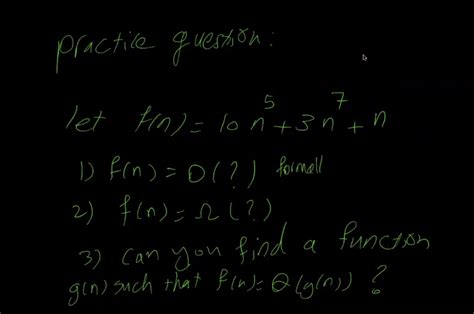 practice question:
let f(n) = 10 n⁵ + 3 n⁷ + n
1) f(n) = O(?) formall
2) f(n) = Ω(?)
3) can you find a function
g(n) such that f(n) = Θ(g(n)) ?